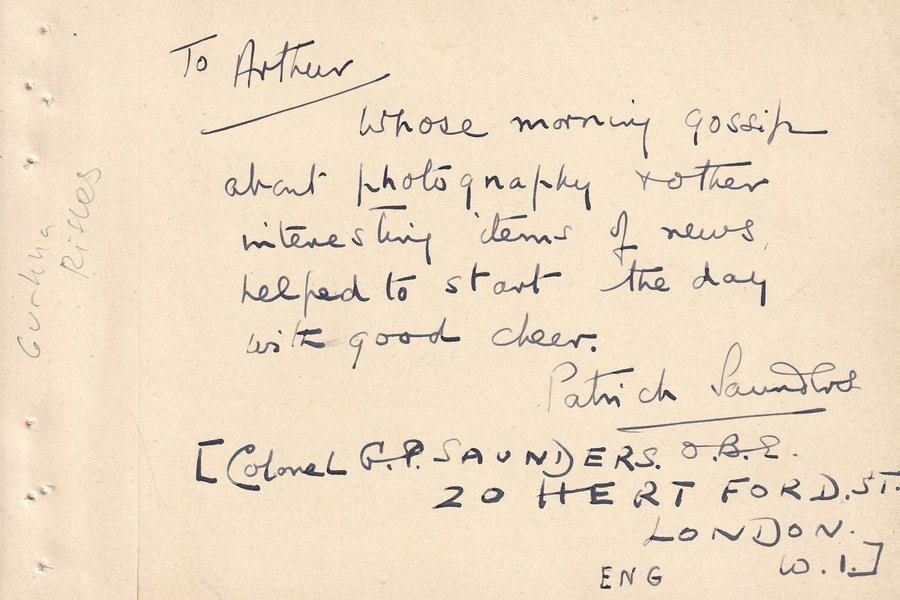 To Arthur
Whose morning gossip
about photography & other
interesting items of news,
helped to start the day
with good cheer.
Patrick Saunders
[Colonel G.P. SAUNDERS. O.B.E.
20 HERTFORD. ST.
LONDON.
W.1.]
ENG
Gurkha
Rifles